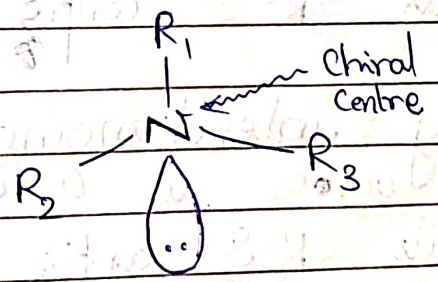 R1
Chiral
centre
N
R2
R3